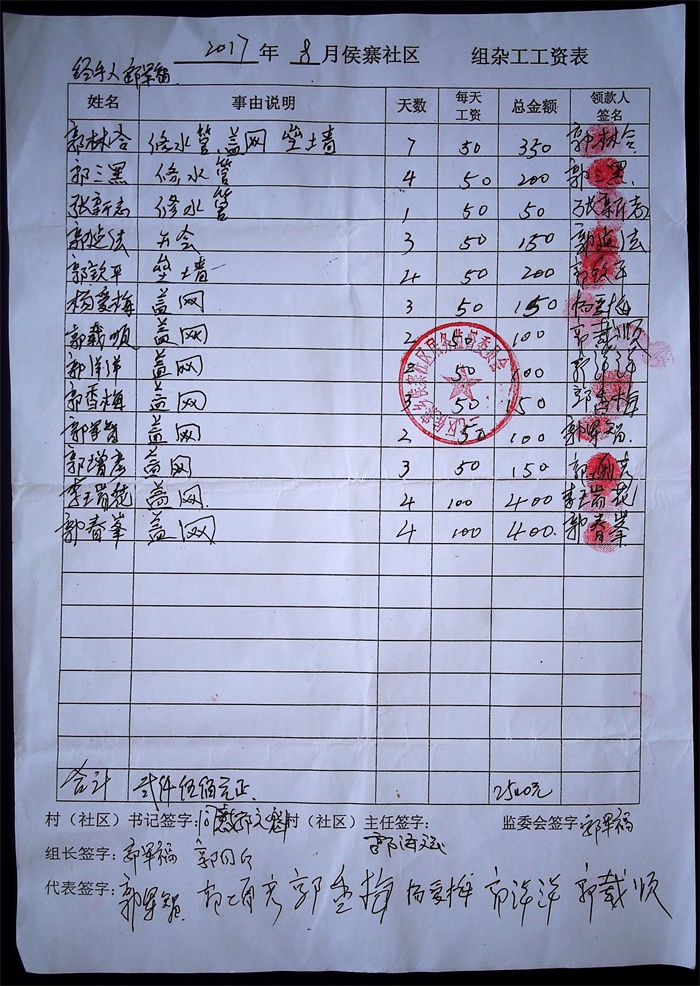 2017年 8月侯寨社区 组杂工工资表
经手人
姓名 事由说明 天数 每天工资 总金额 领款人签名
郭林合 修水管 盖网 垒墙 7 50 350 郭林合
郭三黑 修水管 4 50 200 郭三黑
张新志 修水管 1 50 50 张新志
郭延法 开会 3 50 150 郭延法
垒墙 4 50 200
杨爱梅 盖网 3 50 150 杨爱梅
郭载顺 盖网 2 50 100 郭载顺
郭洋洋 盖网 2 50 100 郭洋洋
郭香梅 盖网 3 50 150 郭香梅
盖网 2 50 100
盖网 3 50 150
盖网 4 100 400
郭春峯 盖网 4 100 400 郭春峯
合计 贰仟伍佰元正 2500元
村（社区）书记签字: 村（社区）主任签字: 监委会签字:
组长签字:
代表签字: 杨爱梅 郭洋洋 郭载顺